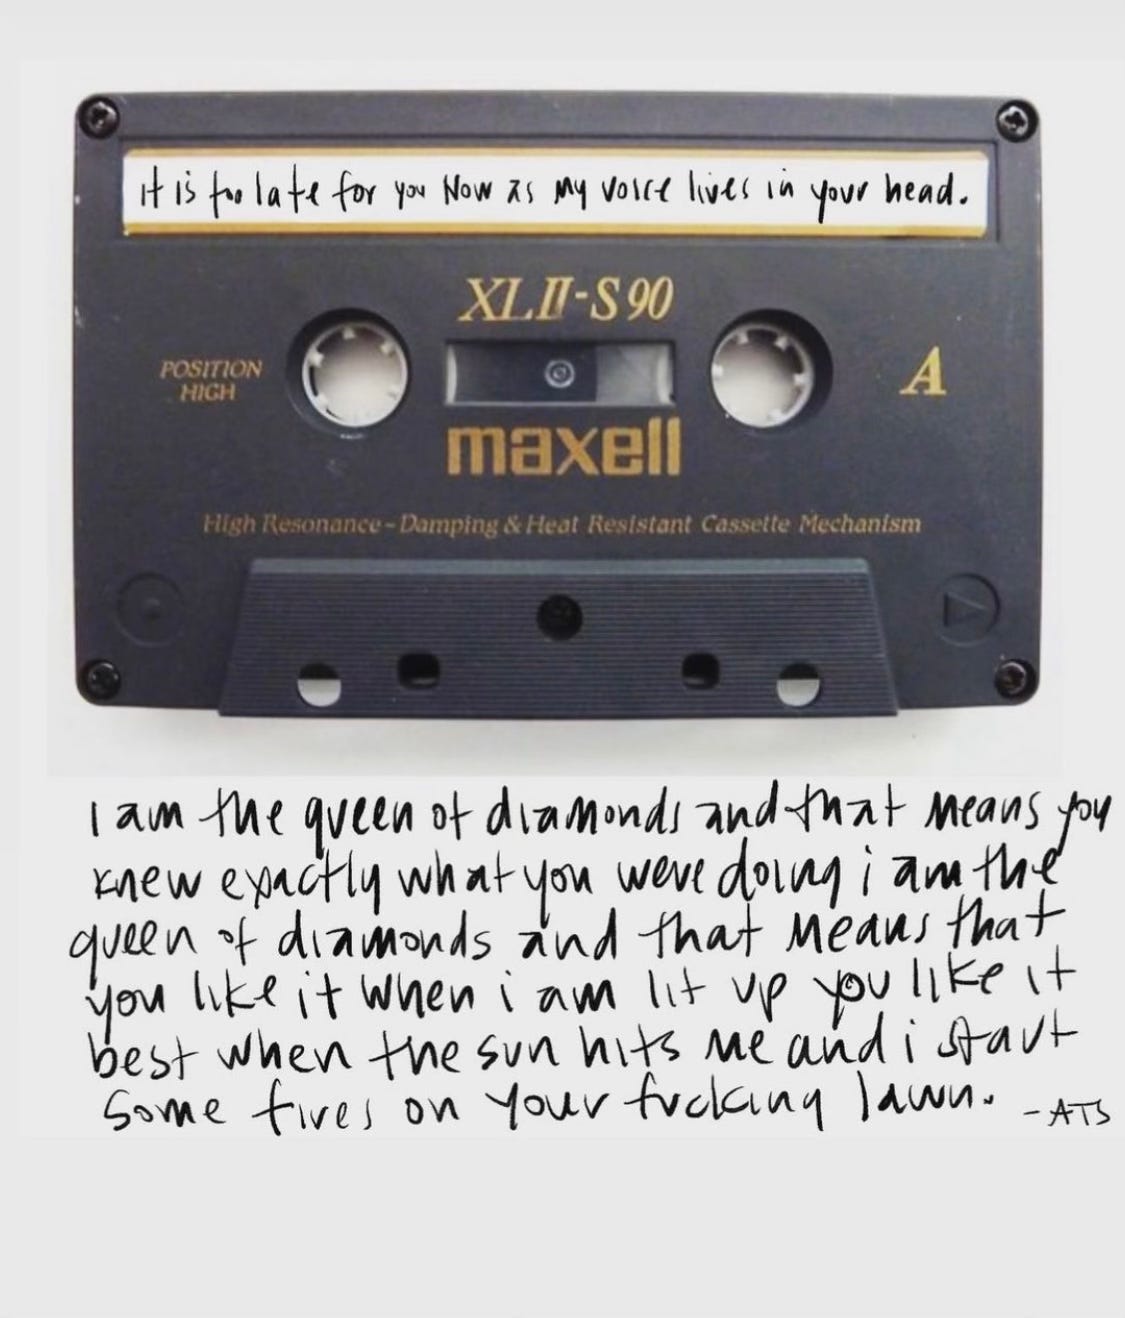 it is too late for you Now as my voice lives in your head.
XLII-S90
POSITION
HIGH
A
maxell
High Resonance-Damping & Heat Resistant Cassette Mechanism
i am the queen of diamonds and that means you
knew exactly what you were doing i am the
queen of diamonds and that means that
you like it when i am lit up you like it
best when the sun hits me and i start
some fires on your fucking lawn.
-ATS